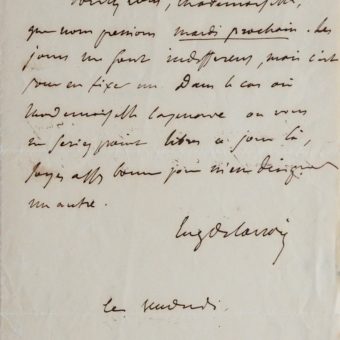 Voulez vous, Mademoiselle,
que nous prenions mardi prochain. Les
jours me sont indifférens, mais c'est
pour en fixer un. Dans le cas où
Mademoiselle ou vous
ne seriez point libres ce jour là,
soyez assez bonne pour m'en désigner
un autre.
Eug Delacroix
ce vendredi.